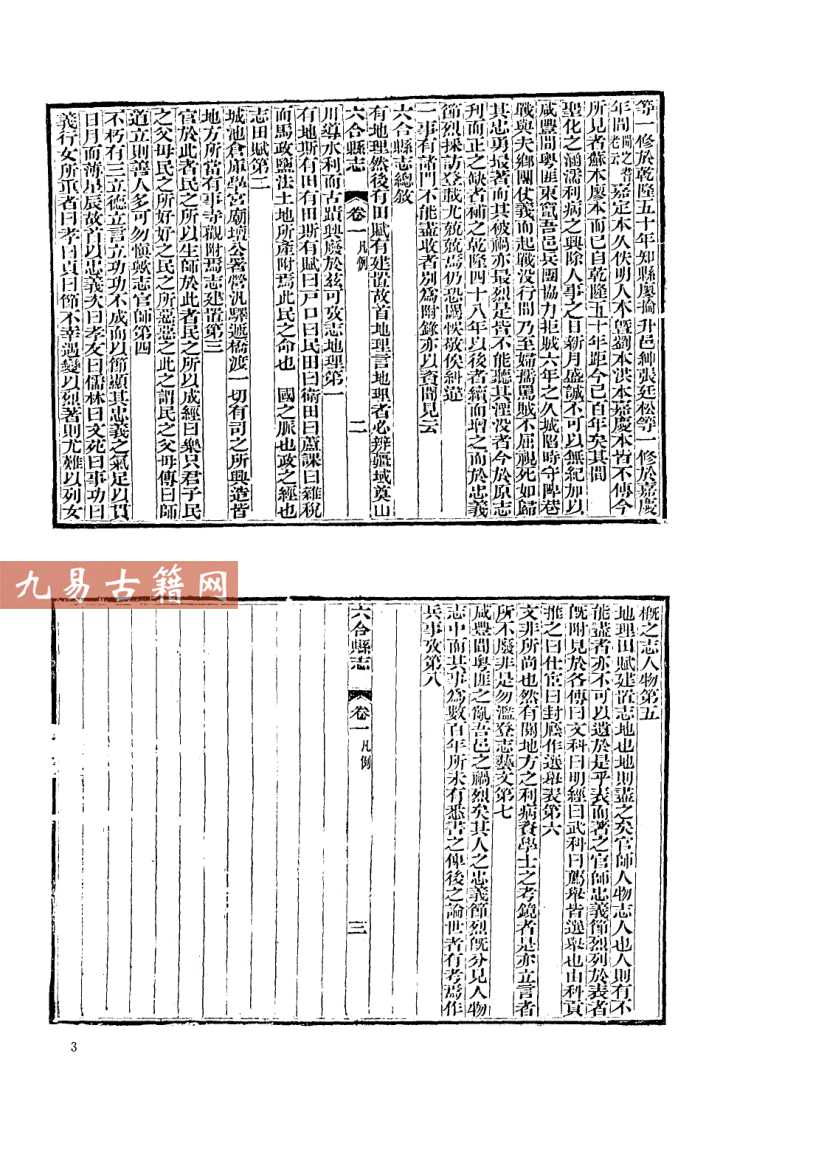 等一修於乾隆五十年知縣廖掄升邑紳張廷松等一修於嘉慶
年間聞之耆老云嘉定本久佚明人本曁劉本洪本嘉慶本皆不傳今
所見者蘇本廖本而已自乾隆五十年距今已百年矣其間
聖化之涵濡利病之興除人事之日新月盛誠不可以無紀加以
咸豐間粵匪東竄吾邑兵團協力拒賊六年之久城陷時守陴巷
戰與夫鄉團仗義而起戰没行間乃至婦孺罵賊不屈視死如歸
其忠勇最著而其被禍亦最烈是皆不能聽其湮没者今於原志
刊而正之缺者補之乾隆四十八年以後者續而增之而於忠義
節烈採訪登載尤兢兢焉仍恐闕佚敬俟糾違
一事有諸門不能盡收者別為附錄亦以資聞見云
六合縣志總敘
有地理然後有田賦有建置故首地理言地理者必辨疆域奠山
六合縣志 卷一 凡例 二
川導水利而古蹟興廢於兹可攷志地理第一
有地斯有田有田斯有賦曰戶口曰民田曰衛田曰蘆課曰雜稅
而馬政鹽法土地所產附焉此民之命也 國之脈也政之經也
志田賦第二
城池倉庫學宮廟壇公署營汛驛遞橋渡一切有司之所興造皆
地方所當有事寺觀附焉志建置第三
官於此者民之所以生師於此者民之所以成經曰樂只君子民
之父母民之所好好之民之所惡惡之此之謂民之父母傳曰師
道立則善人多可勿愼歟志官師第四
不朽有三立德立言立功功不成而以節顯其忠義之氣足以貫
日月而溯星辰故首以忠義次曰孝友曰儒林曰文苑曰事功曰
義行女所重者曰孝曰貞曰節不幸遇變以烈著則尤難以列女
概之志人物第五
地理田賦建置志地也地則盡之矣官師人物志人也人則有不
能盡者亦不可以遺於是乎表而著之官師忠義節烈列於表者
旣附見於各傳曰文科曰明經曰武科曰薦舉皆選舉也由科貢
推之曰仕宦曰封廕作選舉表第六
文非所尚也然有關地方之利病資學士之考鏡者是亦立言者
所不廢非是勿濫登志藝文第七
咸豐間粵匪之亂吾邑之禍烈矣其人之忠義節烈旣分見人物
志中而其事為數百年所未有悉書之俾後之論世者有考焉作
兵事攷第八
六合縣志 卷一 凡例 三
九易古籍网
3